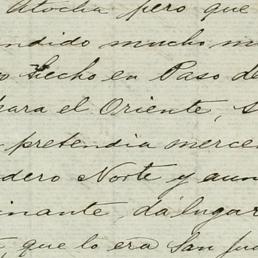 Atocha pero que
ndido mucho m
o hecho en Paso de
para el Oriente, s
pretendia merce
dero Norte y aun
inante, da lugar
que lo era San Jua